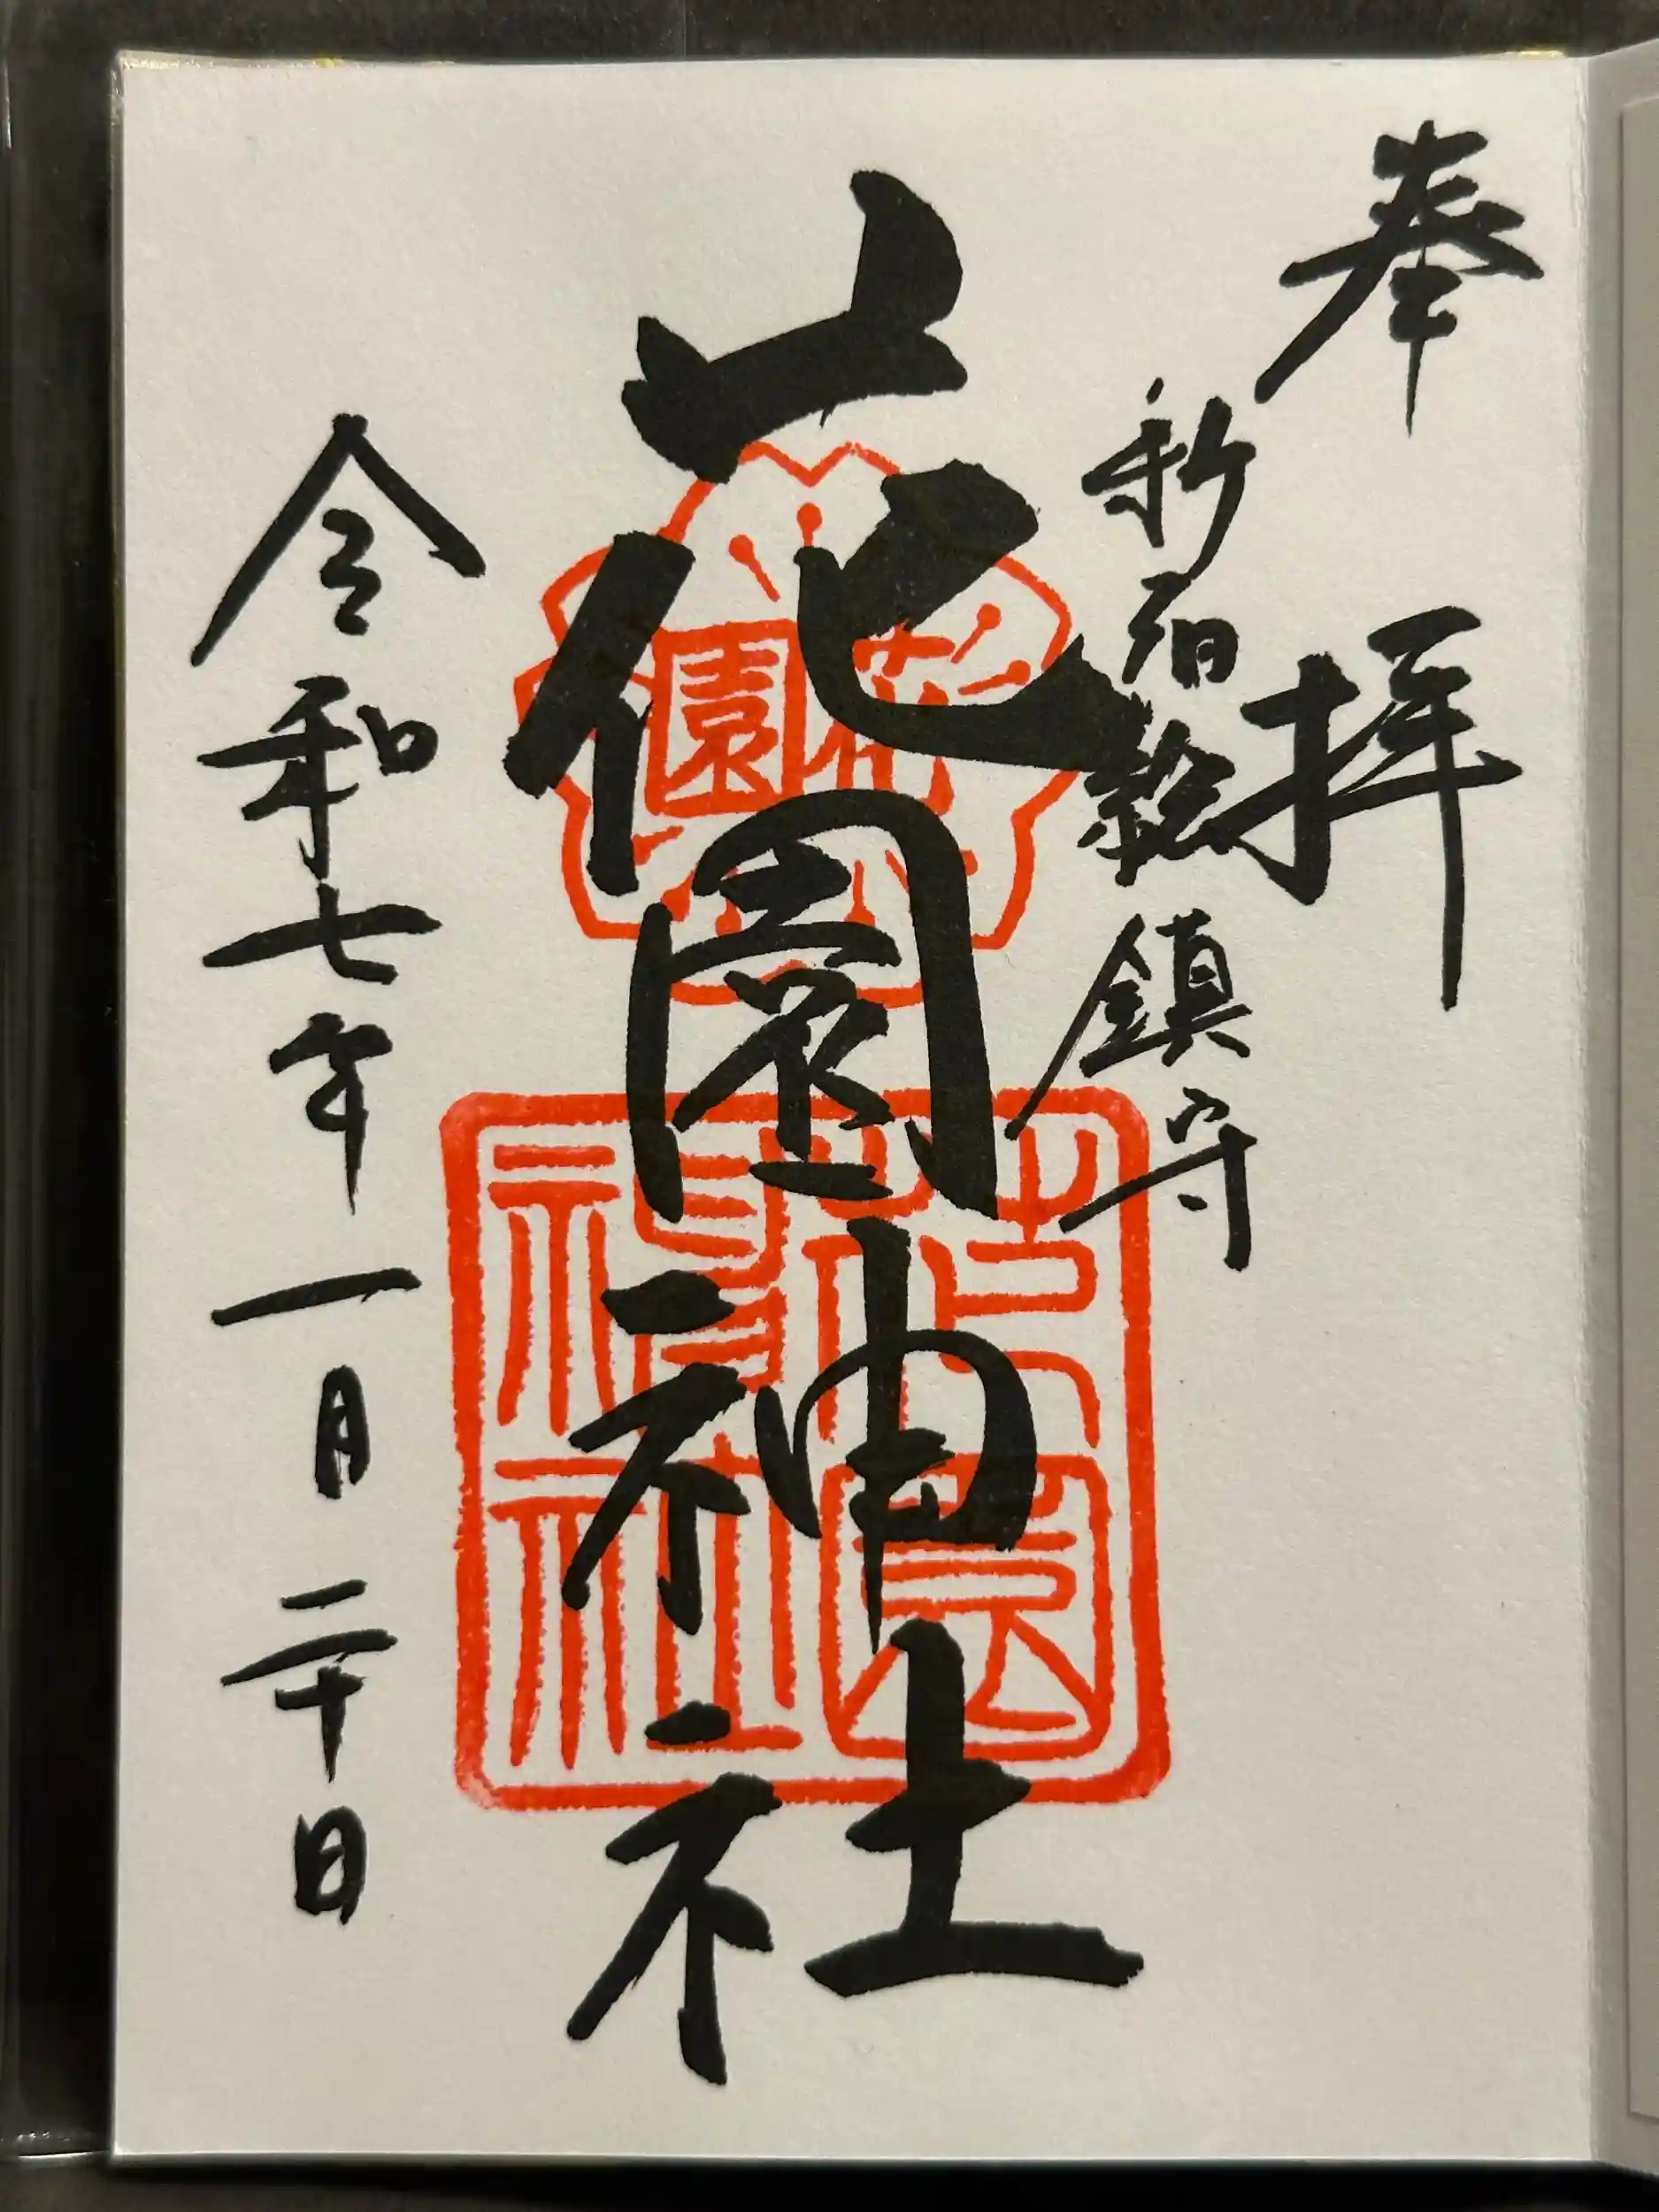 奉拝
新宿総鎮守
花園神社
花園
花園神社
令和七年一月二十日